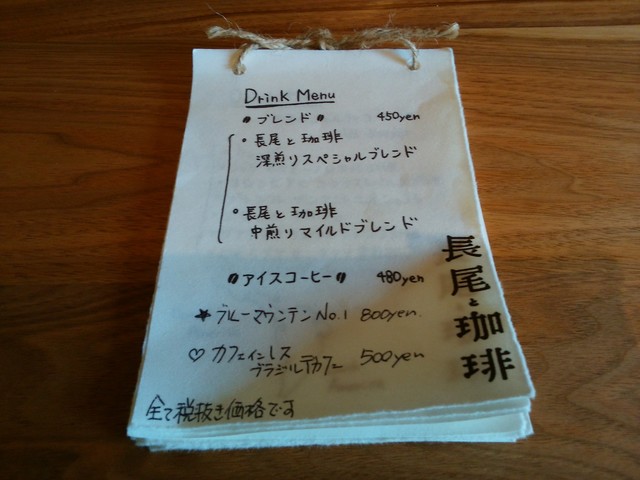 Drink Menu
ブレンド 450yen
・長尾と珈琲
深煎りスペシャルブレンド
・長尾と珈琲
中煎りマイルドブレンド
アイスコーヒー 480yen
★ブルーマウンテンNo.1 800yen.
♡カフェインレス
ブラジルデカフェ 500yen
全て税抜き価格です
長尾と珈琲